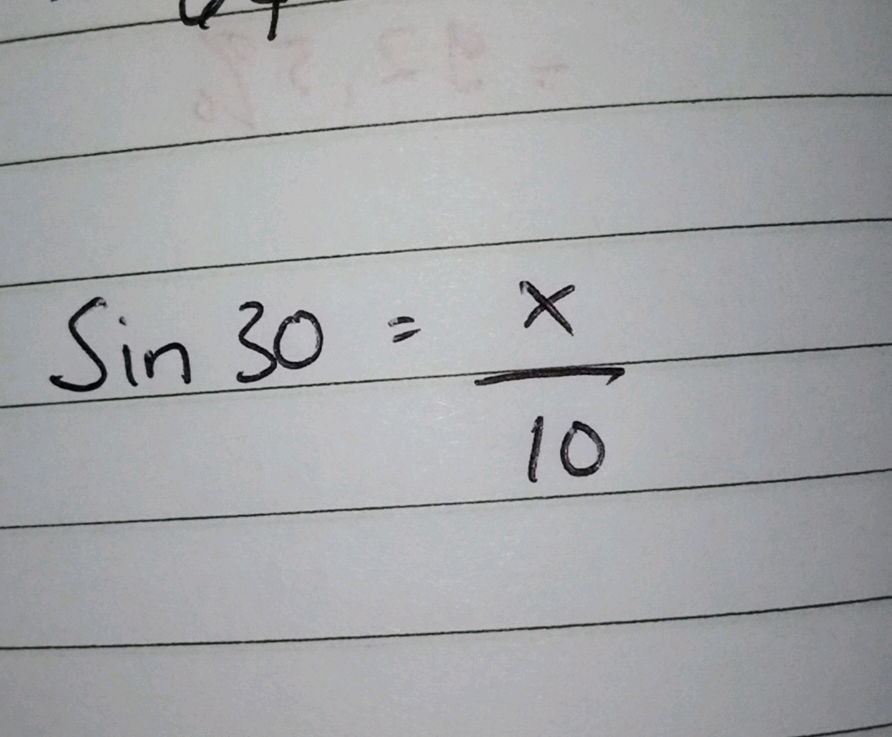 Sin 30 = x
10